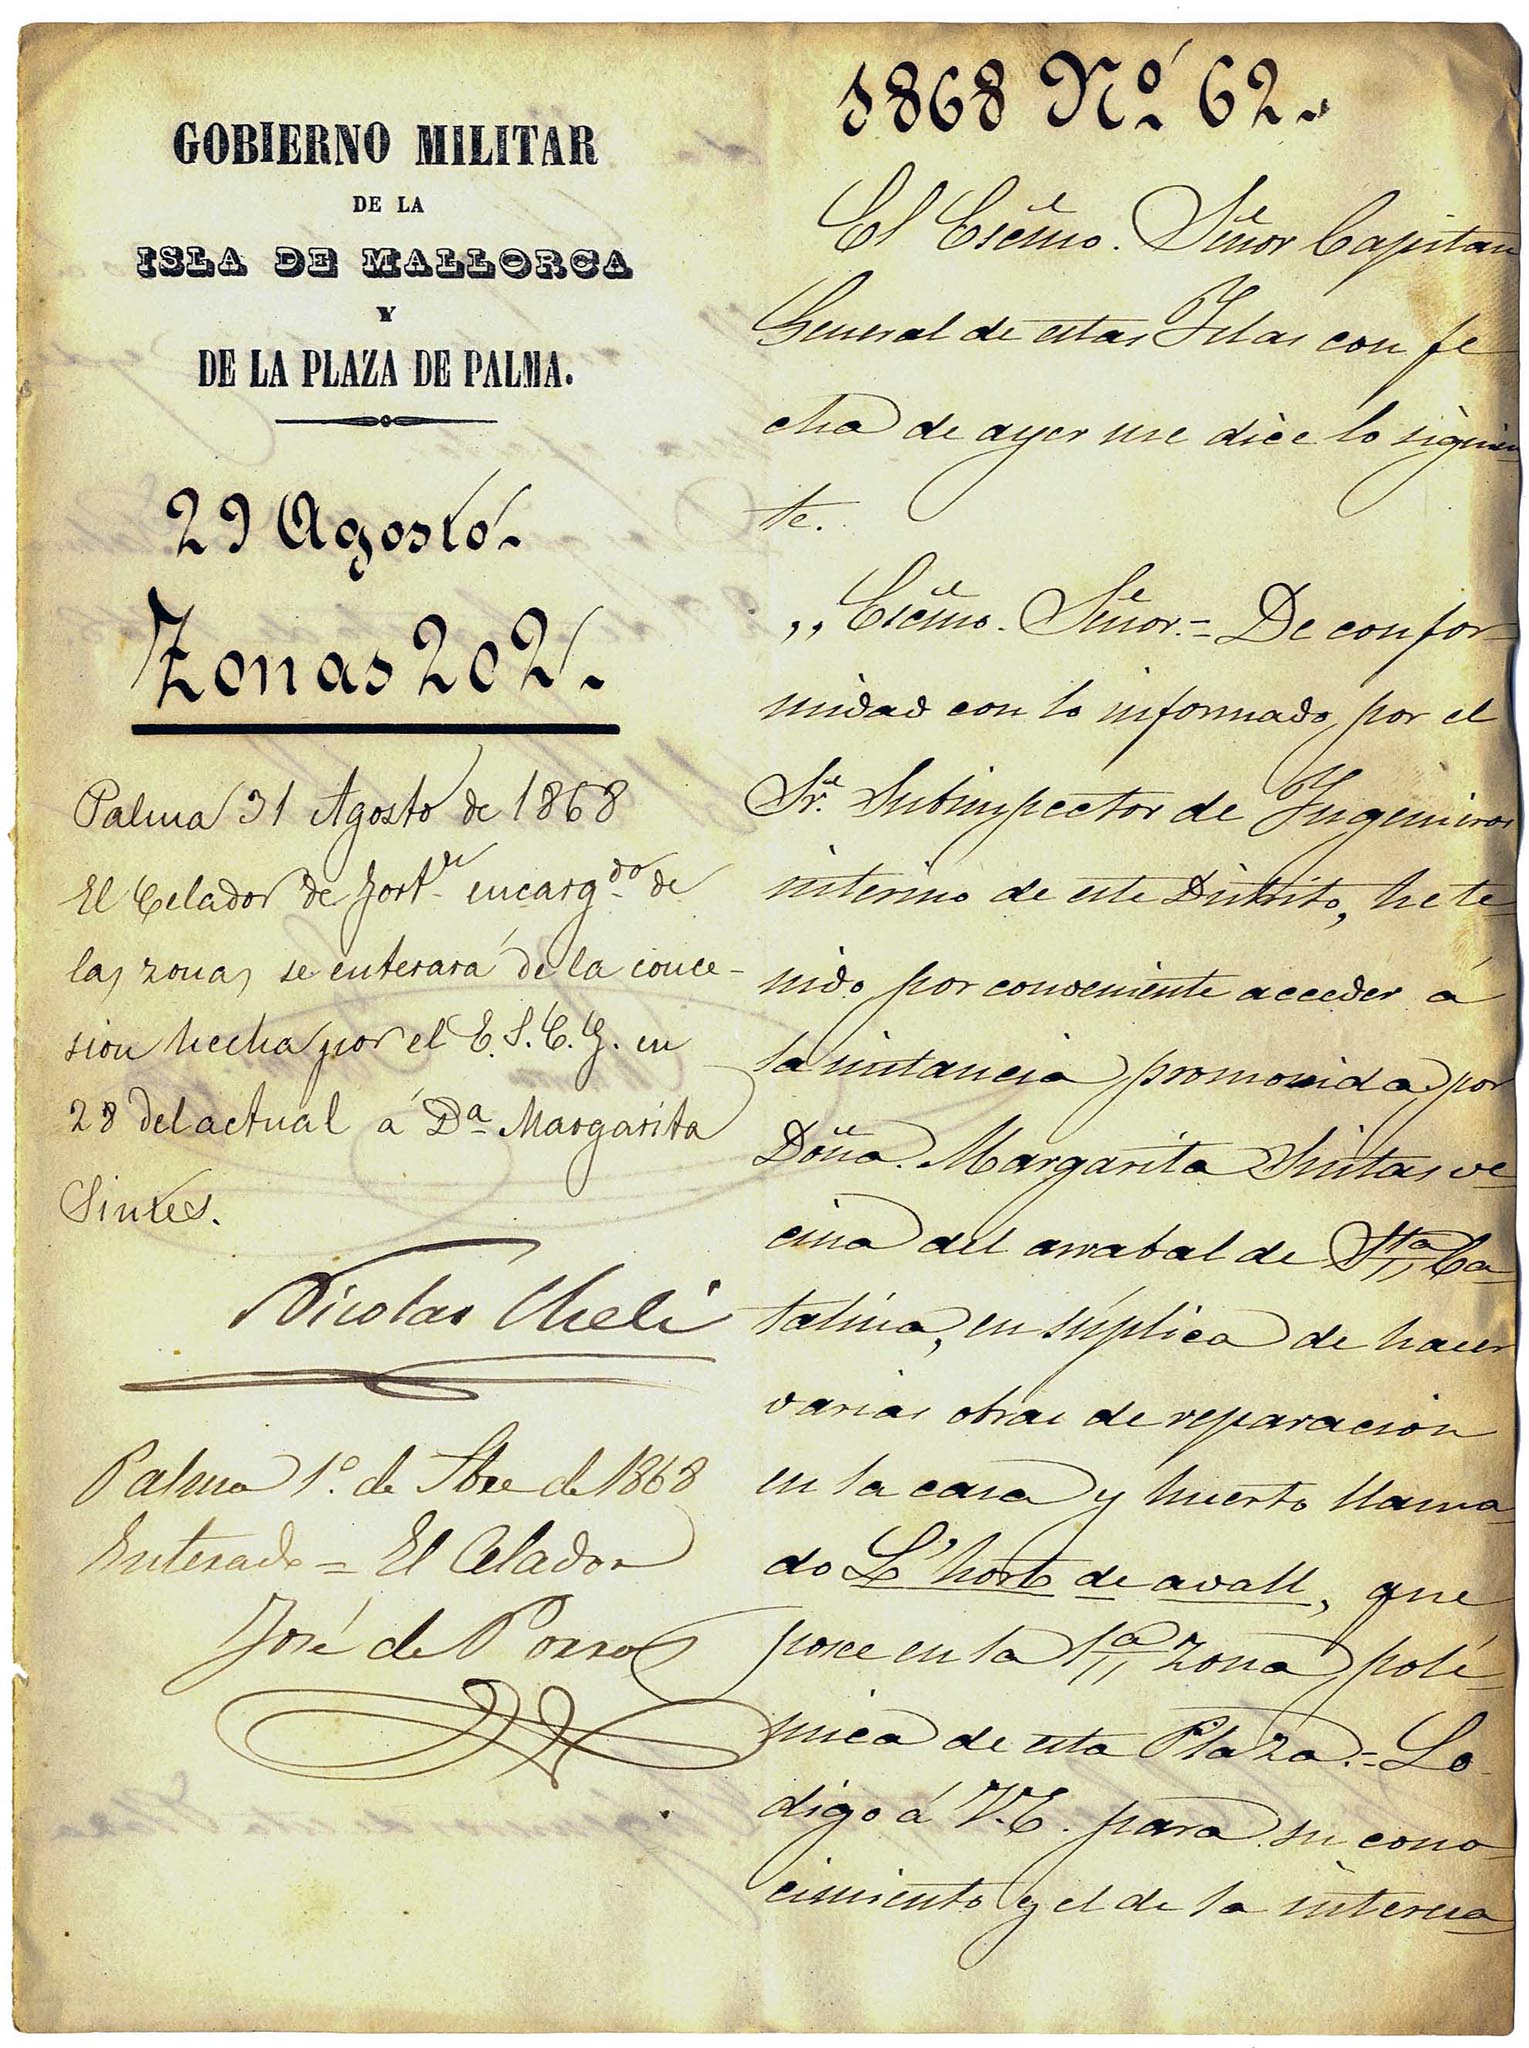 GOBIERNO MILITAR
DE LA
ISLA DE MALLORCA
Y
DE LA PLAZA DE PALMA.
29 Agosto.
Zonas 202.
Palma 31 Agosto de 1868
El Celador de Fort.n encarg.do de
las zonas se enterará de la conce-
sion hecha por el E. S. C. G. en
28 del actual á D.a Margarita
Sintes.
Nicolas Cheli
Palma 1.o de Sbre de 1868
Enterado = El Celador
José de
1868 No. 62.
El Escmo. Señor Capitan
General de estas Islas con fe
cha de ayer me dice lo siguien
te.
,,Escmo. Señor.= De confor-
midad con lo informado por el
Sr. Subinspector de Ingenieros
interino de este Distrito, he te-
nido por conveniente acceder á
la instancia promovida por
Doña. Margarita Sintas ve-
cina del arrabal de Sta Ca-
talina, en súplica de hacer
varias obras de reparacion
en la casa y huerto llama-
do L'hort de avall, que
posee en la 1a zona polé-
mica de esta Plaza.= Lo
digo á V.E. para su cono-
cimiento y el de la interesa